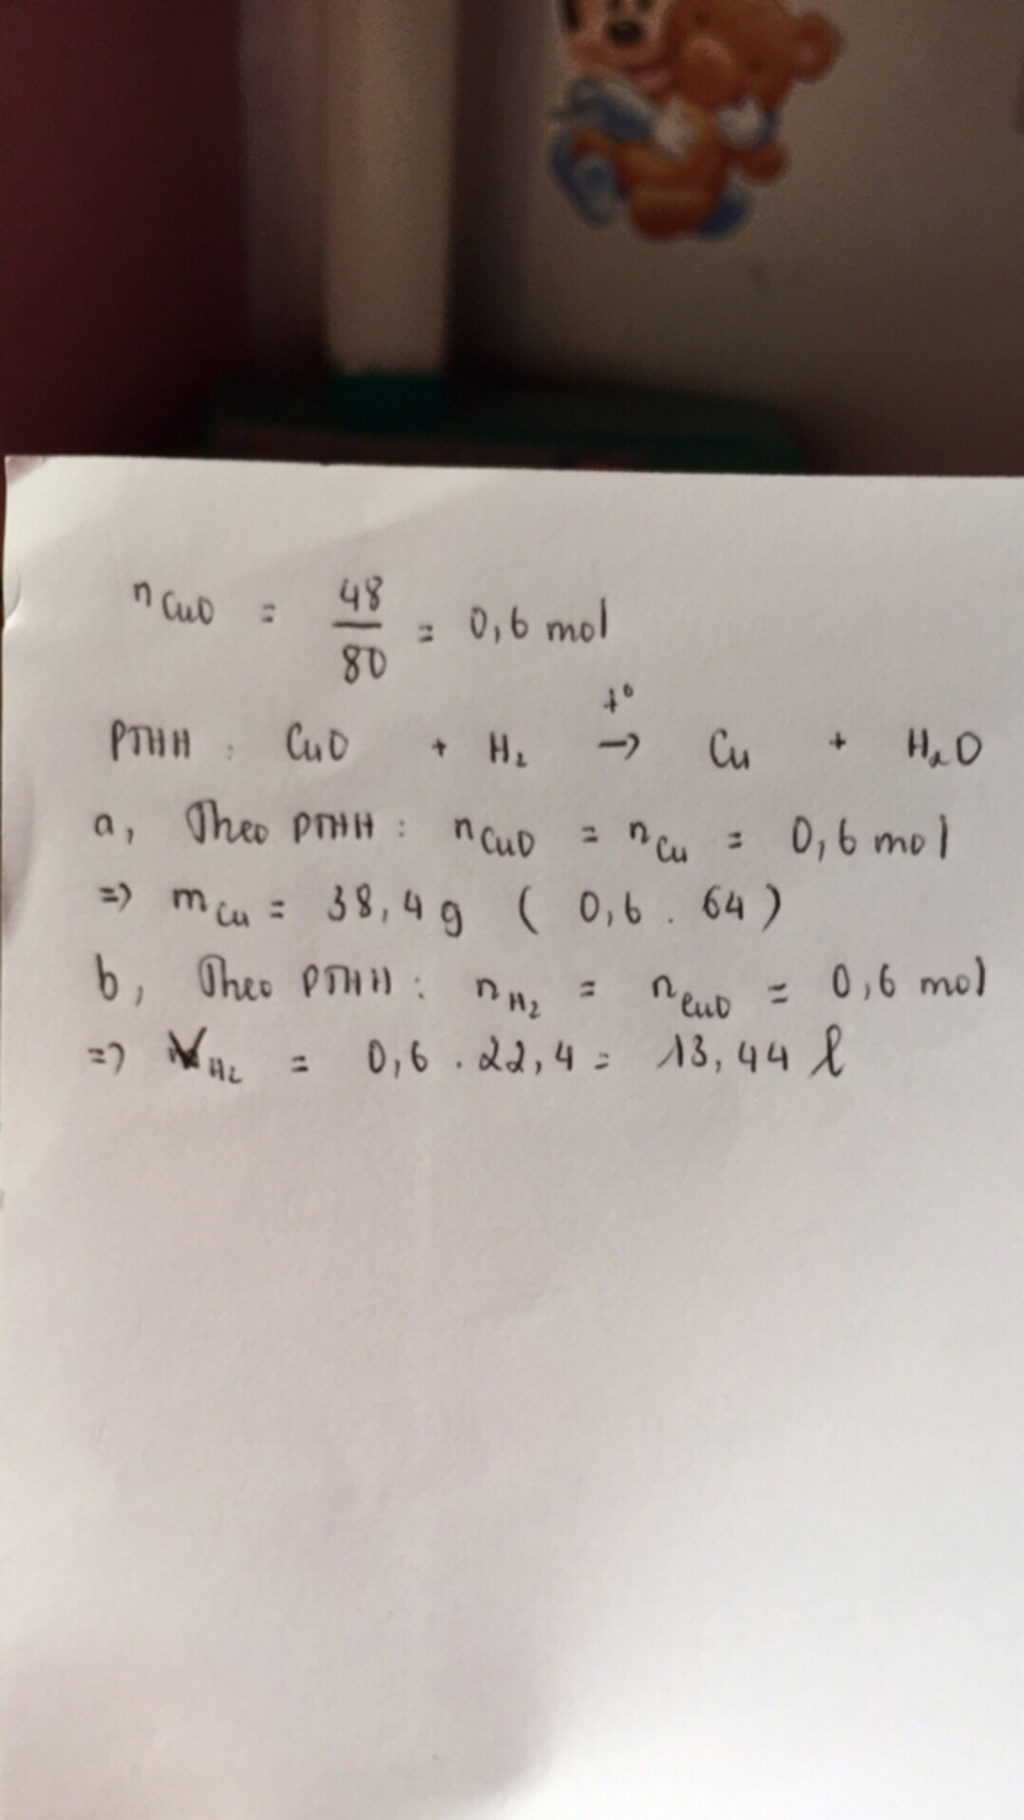 nCuO = 48/80 = 0,6 mol
PTHH : CuO + H₂ →t° Cu + H₂O
a, Theo PTHH : nCuO = nCu = 0,6 mol
=> mCu = 38,4 g ( 0,6 . 64 )
b, Theo PTHH : nH₂ = nCuO = 0,6 mol
=> VH₂ = 0,6 . 22,4 = 13,44 l